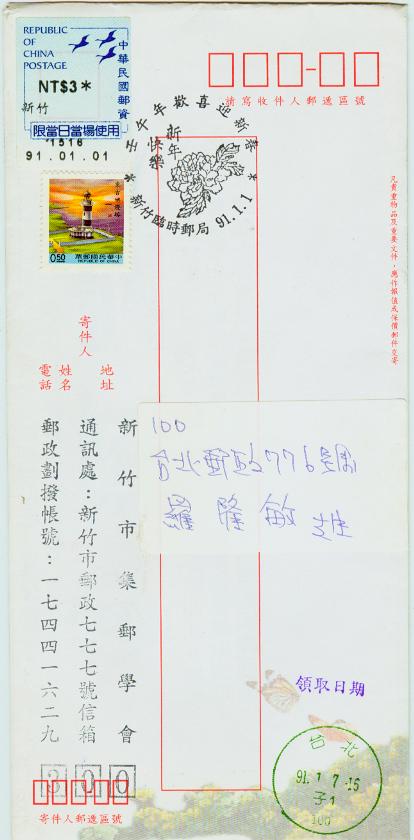 REPUBLIC
OF
CHINA
POSTAGE
中華民國郵資
NT$3*
新竹
限當日當場使用
1516
91.01.01
壬午年歡喜迎新春
新年
快樂
新竹臨時郵局 91.1.1
請寫收件人郵遞區號
東吉嶼燈塔
0.50
票郵國民華中
REPUBLIC OF CHINA
凡貴重物品及重要文件,應作報值或保價郵件交寄
寄件人
地址
姓名
電話
100
台北郵政776號
羅隆敏
新竹市集郵學會
通訊處:新竹市郵政七七七號信箱
郵政劃撥帳號:一七四四一六二九
300
寄件人郵遞區號
領取日期
台北
91.1.7-15
子1
100